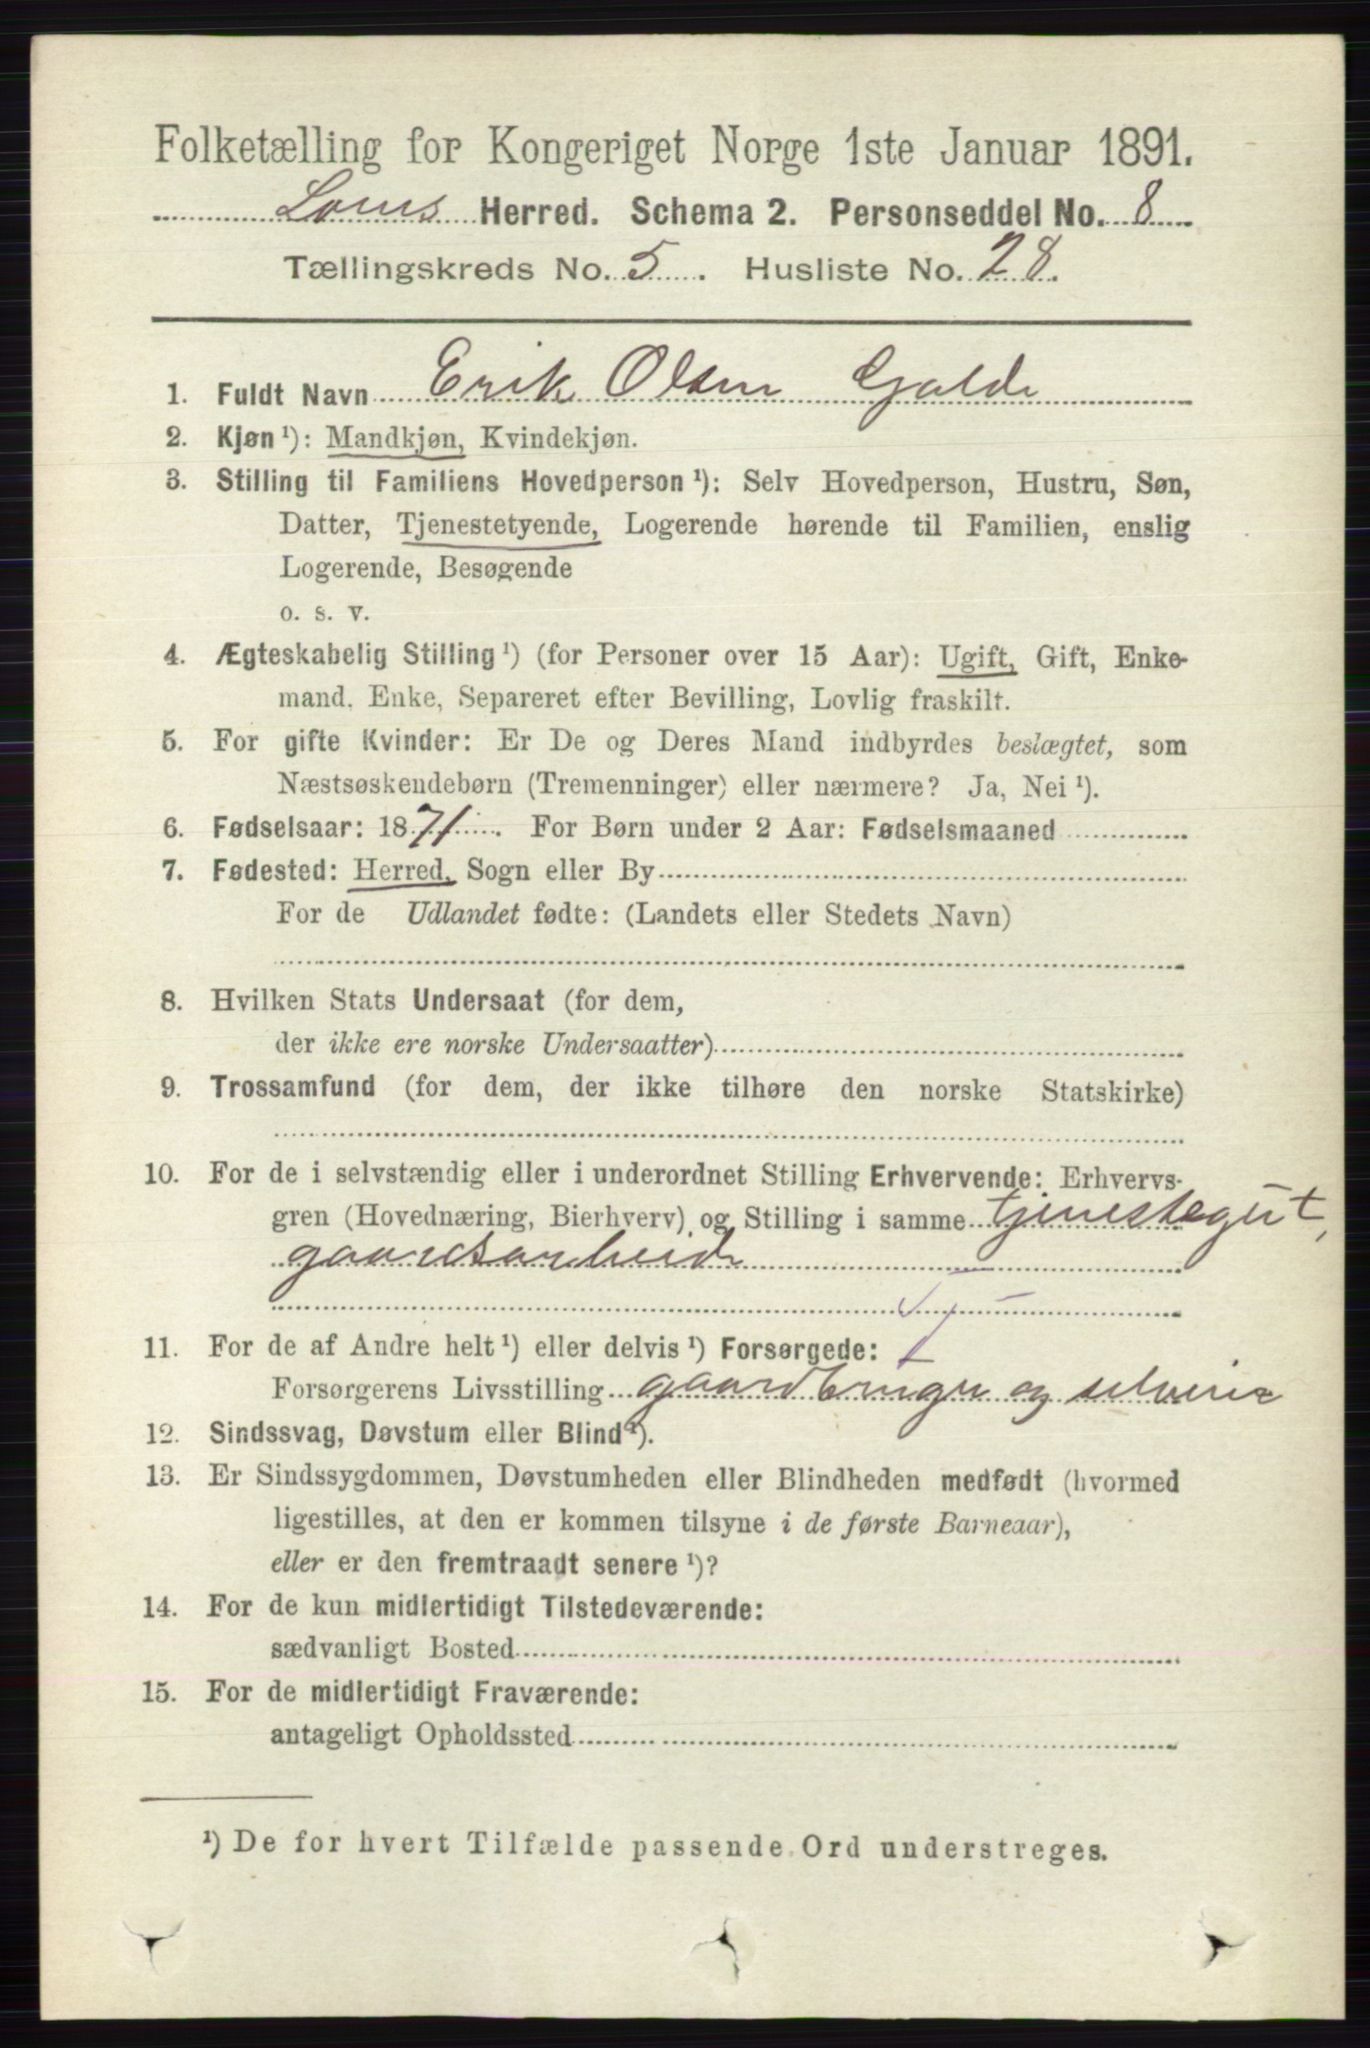 Folketælling for Kongeriget Norge 1ste Januar 1891.
Loms Herred. Schema 2. Personseddel No. 8
Tællingskreds No. 5. Husliste No. 28.
1. Fuldt Navn Erik Olsen Galde
2. Kjøn ¹): Mandkjøn, Kvindekjøn.
3. Stilling til Familiens Hovedperson ¹): Selv Hovedperson, Hustru, Søn,
Datter, Tjenestetyende, Logerende hørende til Familien, enslig
Logerende, Besøgende
o. s. v.
4. Ægteskabelig Stilling ¹) (for Personer over 15 Aar): Ugift, Gift, Enke-
mand, Enke, Separeret efter Bevilling, Lovlig fraskilt.
5. For gifte Kvinder: Er De og Deres Mand indbyrdes beslægtet, som
Næstsøskendebørn (Tremenninger) eller nærmere? Ja, Nei ¹).
6. Fødselsaar: 1871. For Børn under 2 Aar: Fødselsmaaned
7. Fødested: Herred, Sogn eller By
For de Udlandet fødte: (Landets eller Stedets Navn)
8. Hvilken Stats Undersaat (for dem,
der ikke ere norske Undersaatter)
9. Trossamfund (for dem, der ikke tilhøre den norske Statskirke)
10. For de i selvstændig eller i underordnet Stilling Erhvervende: Erhvervs-
gren (Hovednæring, Bierhverv) og Stilling i samme tjenestegut,
gaardsarbeide
11. For de af Andre helt ¹) eller delvis ¹) Forsørgede:
Forsørgerens Livsstilling gaardbruger og selveier
12. Sindssvag, Døvstum eller Blind ¹).
13. Er Sindssygdommen, Døvstumheden eller Blindheden medfødt (hvormed
ligestilles, at den er kommen tilsyne i de første Barneaar),
eller er den fremtraadt senere ¹)?
14. For de kun midlertidigt Tilstedeværende:
sædvanligt Bosted
15. For de midlertidigt Fraværende:
antageligt Opholdssted
¹) De for hvert Tilfælde passende Ord understreges.